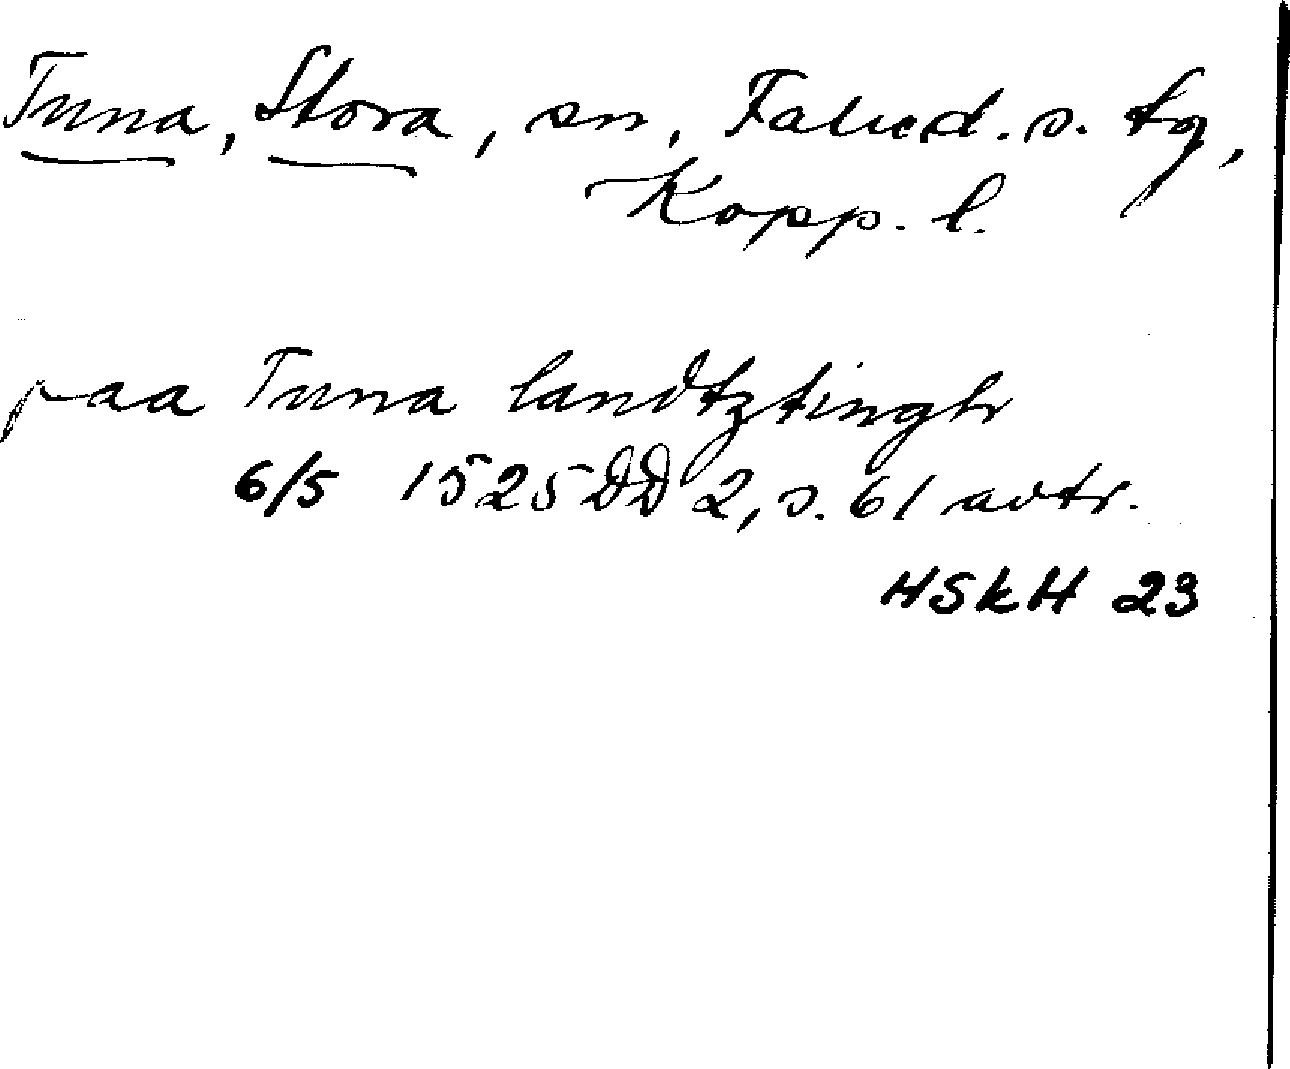 Tuna, Stora, sn, Falu d. s. tg,
Kopp. l.
paa Tuna landtztingh
6/5 1525 DD 2, s. 61 avtr.
HSkH 23